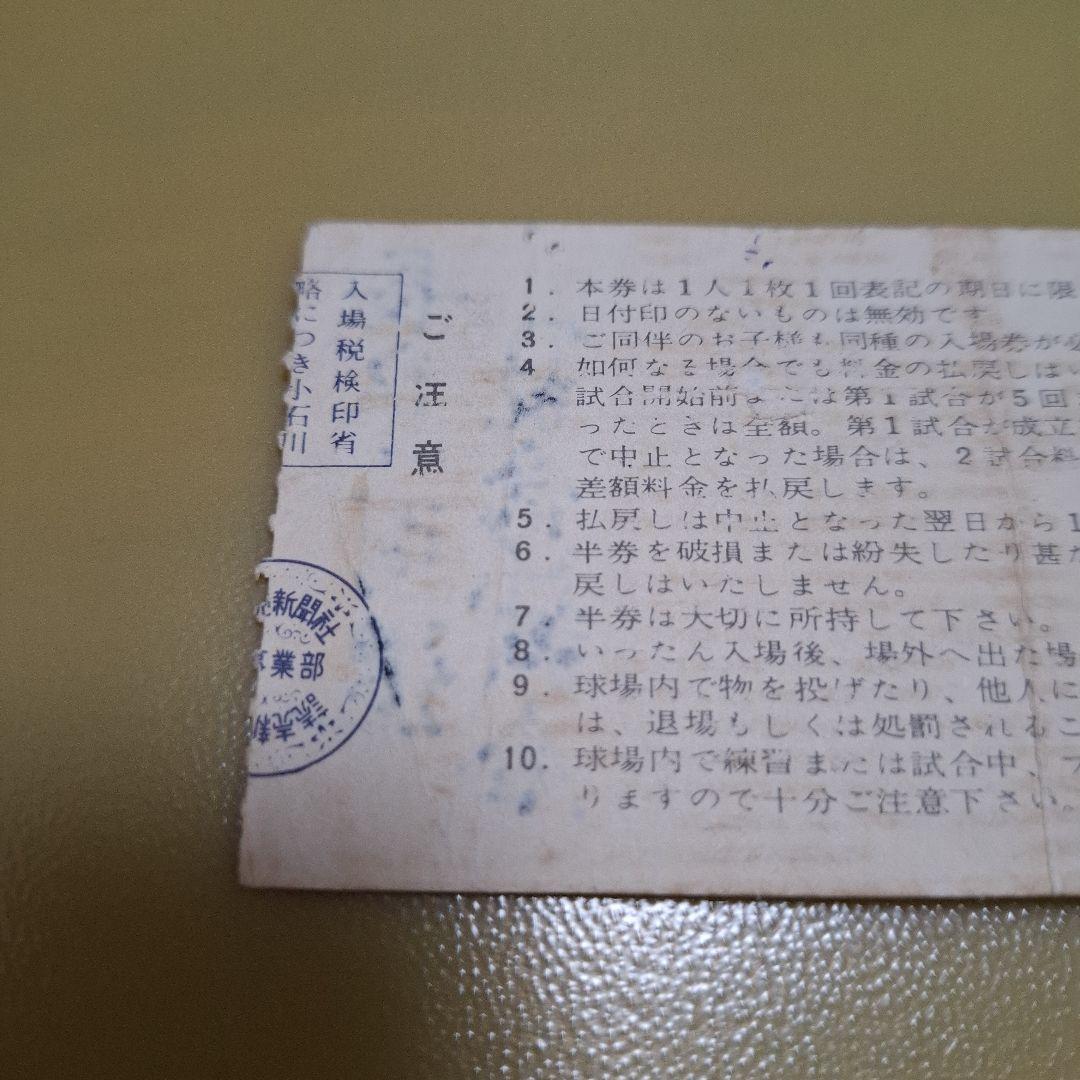 入場税検印省
略につき小石川
ご注意
1. 本券は1人1枚1回表記の期日に限
2. 日付印のないものは無効です
3. ご同伴のお子様も同種の入場券が必
4 如何なる場合でも料金の払戻しはい
試合開始前または第1試合が5回
ったときは全額。第1試合が成立
で中止となった場合は、2試合料
差額料金を払戻します。
5. 払戻しは中止となった翌日から1
6. 半券を破損または紛失したり甚だ
戻しはいたしません。
7. 半券は大切に所持して下さい。
8. いったん入場後、場外へ出た場
9. 球場内で物を投げたり、他人に
は、退場もしくは処罰されるこ
10. 球場内で練習または試合中、フ
りますので十分ご注意下さい。
売新聞社
業部
読売新